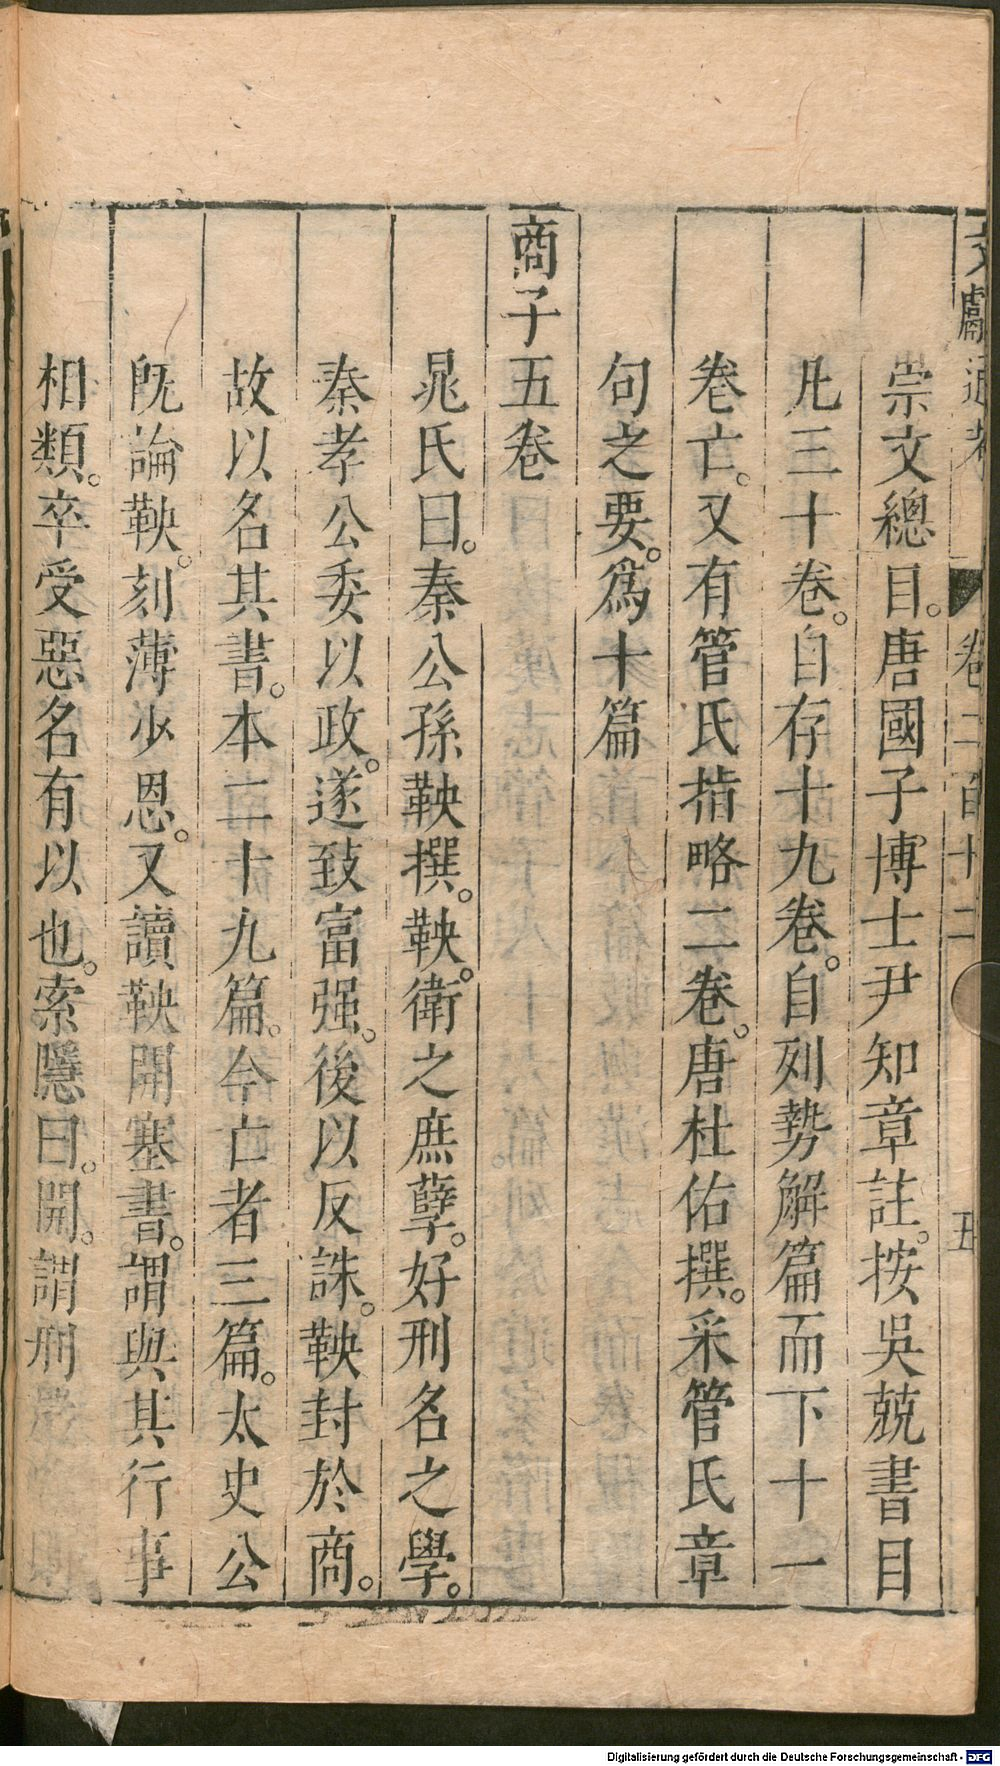 文獻通考 卷二百十二 五
崇文總目。唐國子博士尹知章註。按吳兢書目
凡三十卷。自存十九卷。自列勢解篇而下十一
卷亡。又有管氏指略二卷。唐杜佑撰。采管氏章
句之要。爲十篇
商子五卷
晁氏曰。秦公孫鞅撰。鞅。衛之庶孽。好刑名之學。
秦孝公委以政。遂致富强。後以反誅。鞅封於商。
故以名其書。本二十九篇。今亡者三篇。太史公
旣論鞅。刻薄少恩。又讀鞅開塞書。謂與其行事
相類。卒受惡名有以也。索隱曰。開。謂刑
Digitalisierung gefördert durch die Deutsche Forschungsgemeinschaft - DFG